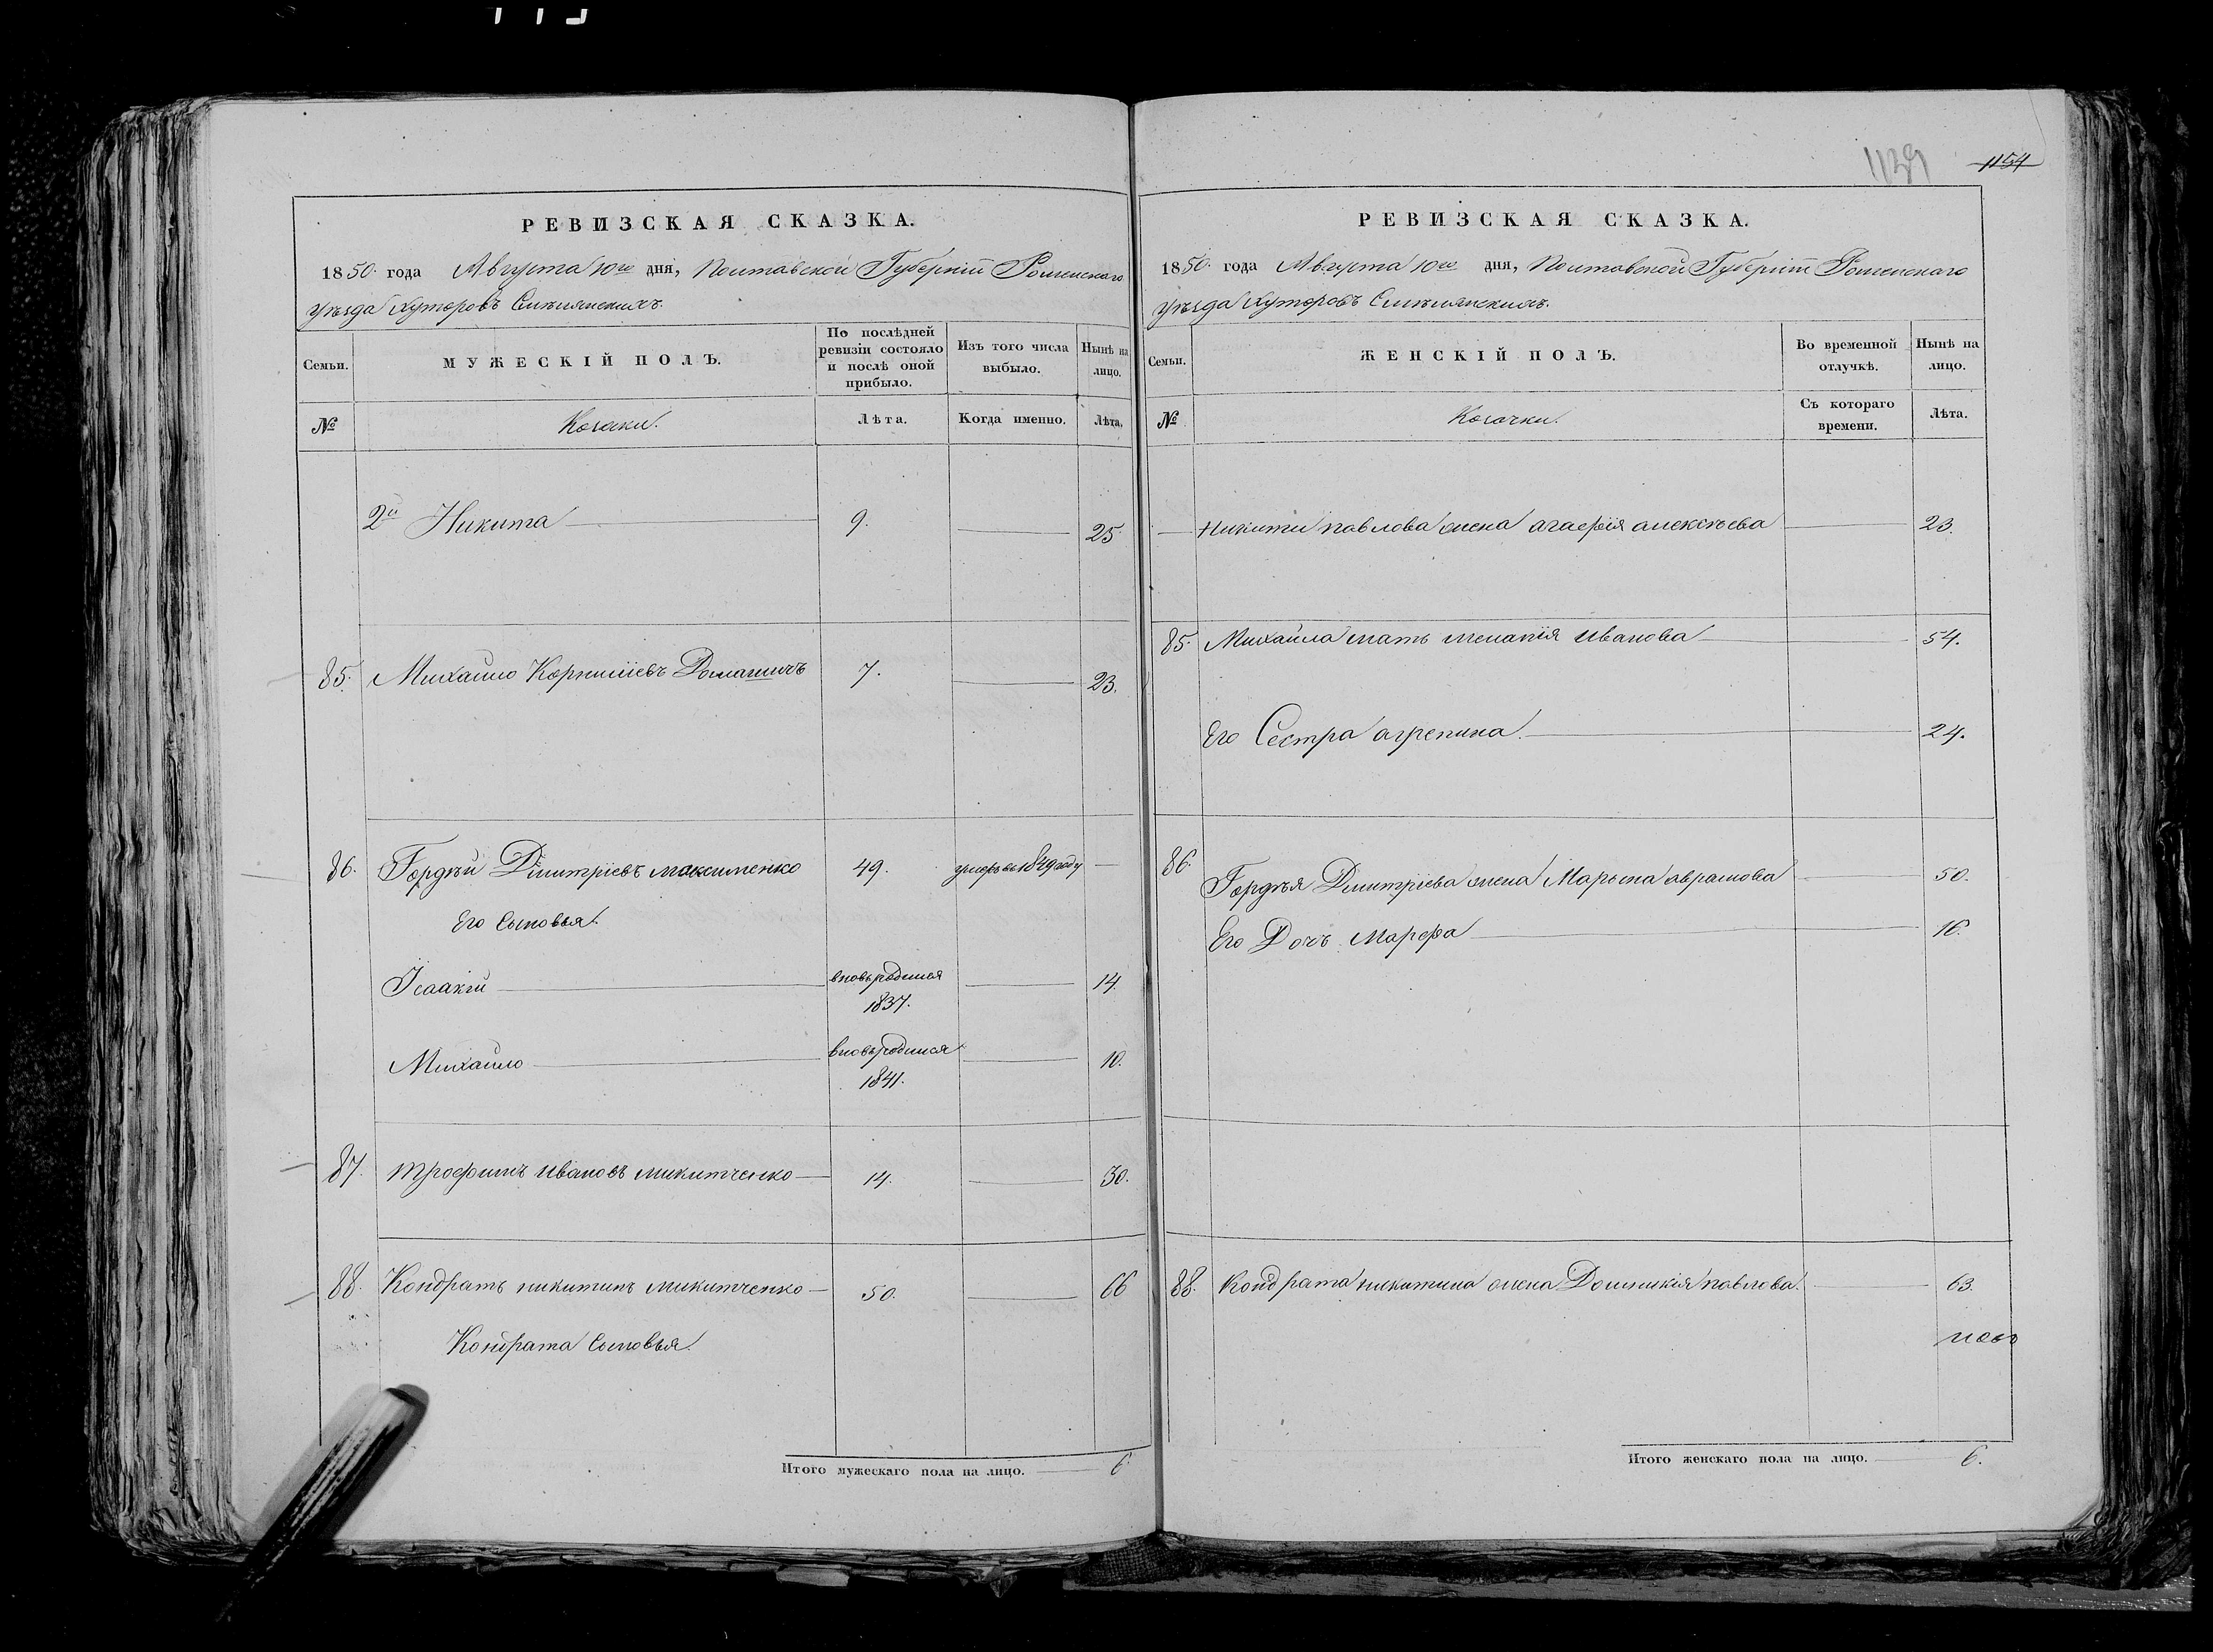 1139 1154
РЕВИЗСКАЯ СКАЗКА.
1850 года Августа 10го дня, Полтавской Губерніи Роменского
уѣзда Хуторовъ
Семьи.
МУЖЕСКІЙ ПОЛЪ.
По послѣдней ревизіи состояло и послѣ оной прибыло.
Изъ того числа выбыло.
Нынѣ на лицо.
№
Козаки.
Лѣта.
Когда именно.
Лѣта.
2й Никита 9. 25
85. Михайло Корниліевъ Домашичъ 7. 23.
86. Гордѣй Дмитріевъ максименко 49. умеръ въ 1849 году
Его Сыновья.
Ісаакій вновьродился 1837. 14.
Михайло вновьродился 1841. 10.
87. трофимъ ивановъ микитченко 14. 30.
88. Кондратъ никитинъ микитченко 50. 66
Кондрата Сыновья.
Итого мужескаго пола на лицо. 6
РЕВИЗСКАЯ СКАЗКА.
1850 года Августа 10го дня, Полтавской Губерніи Роменского
уѣзда Хуторовъ
Семьи.
ЖЕНСКІЙ ПОЛЪ.
Во временной отлучкѣ.
Нынѣ на лицо.
№
Козачки.
Съ котораго времени.
Лѣта.
Никити павлова жена агафія алексѣева 23.
85. Михайла мать меланія иванова 54.
Его Сестра агрепина. 24.
86. Гордѣя Дмитріева жена Марьша аврамова 50.
Его Дочъ Марфа 16.
88. Кондрата никитина жена Домникія павлова. 63.
Итого женскаго пола на лицо. 6.